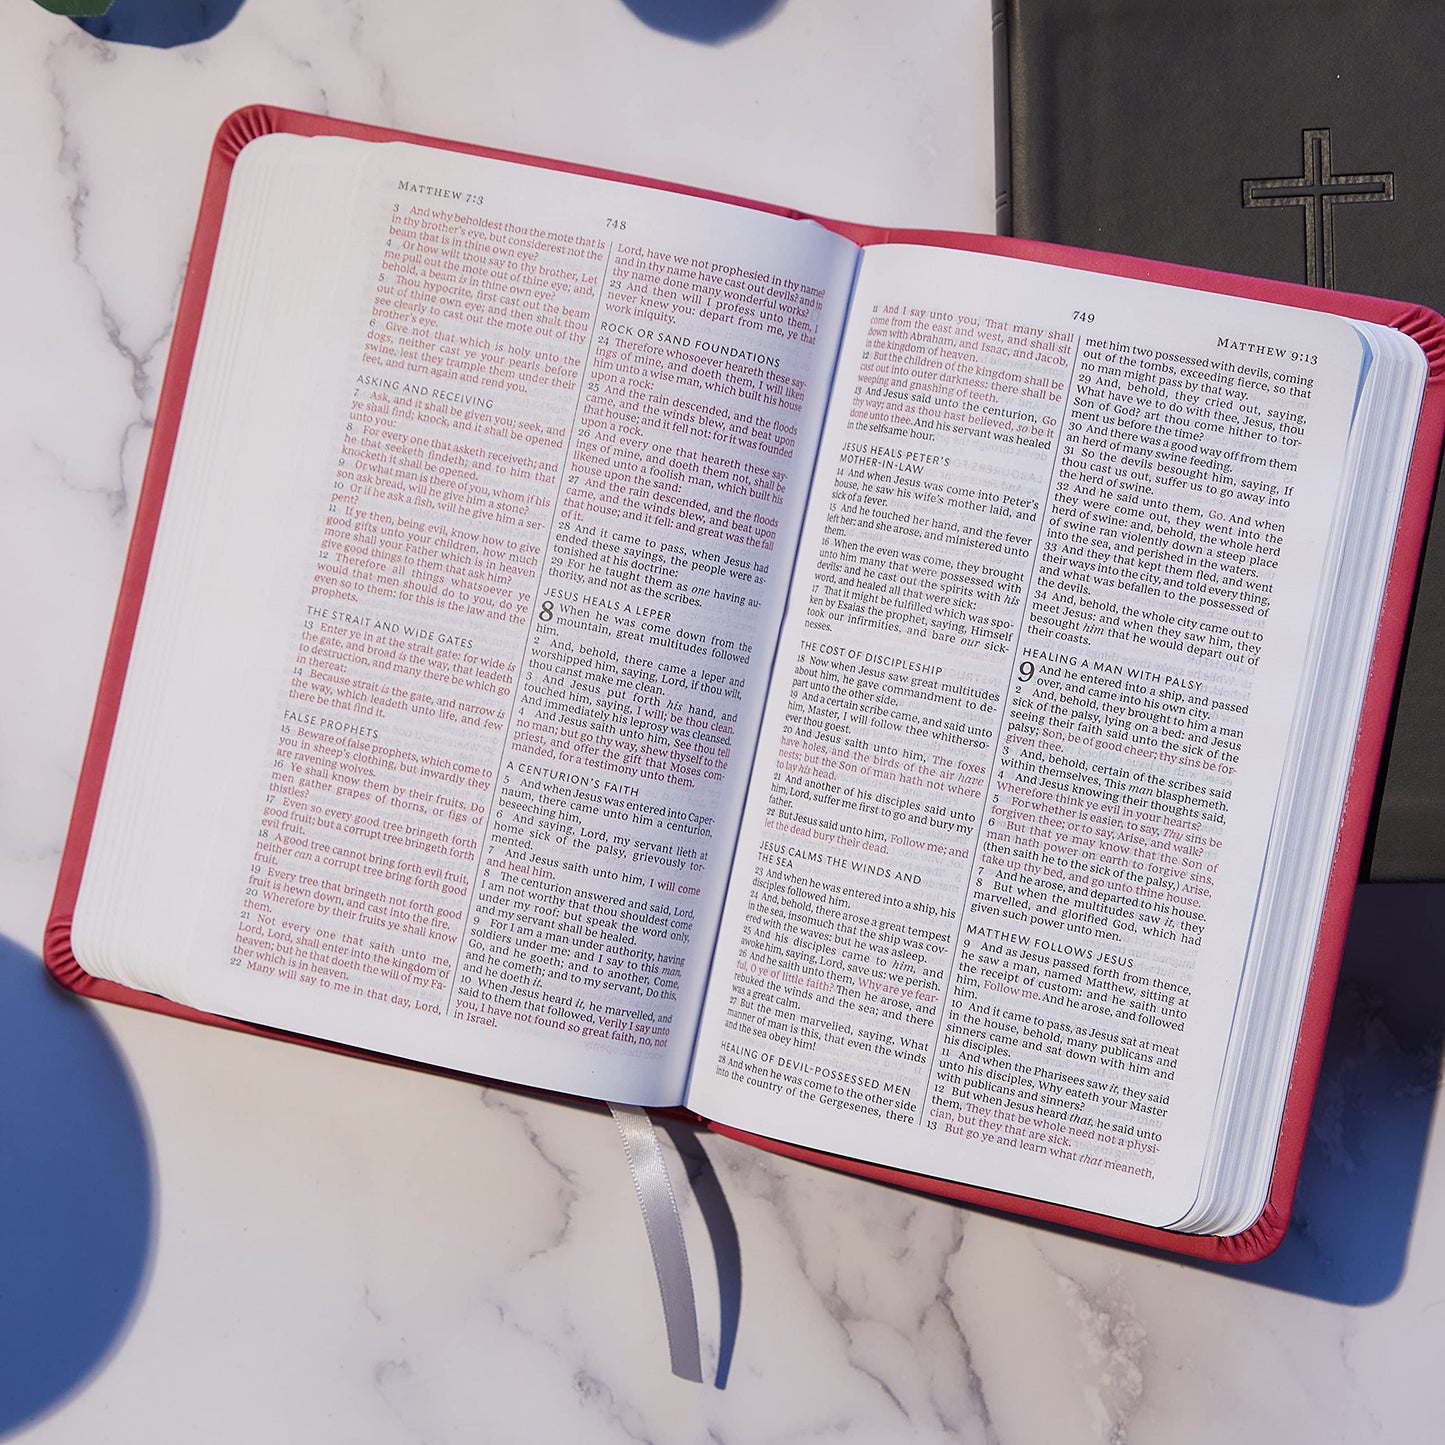 MATTHEW 7:3
748
3 And why beholdest thou the mote that is
in thy brother's eye, but considerest not the
beam that is in thine own eye?
4 Or how wilt thou say to thy brother, Let
me pull out the mote out of thine eye; and,
behold, a beam is in thine own eye?
5 Thou hypocrite, first cast out the beam
out of thine own eye; and then shalt thou
see clearly to cast out the mote out of thy
brother's eye.
6 Give not that which is holy unto the
dogs, neither cast ye your pearls before
swine, lest they trample them under their
feet, and turn again and rend you.
ASKING AND RECEIVING
7 Ask, and it shall be given you; seek, and
ye shall find; knock, and it shall be opened
unto you:
8 For every one that asketh receiveth; and
he that seeketh findeth; and to him that
knocketh it shall be opened.
9 Or what man is there of you, whom if his
son ask bread, will he give him a stone?
10 Or if he ask a fish, will he give him a ser-
pent?
11 If ye then, being evil, know how to give
good gifts unto your children, how much
more shall your Father which is in heaven
give good things to them that ask him?
12 Therefore all things whatsoever ye
would that men should do to you, do ye
even so to them: for this is the law and the
prophets.
THE STRAIT AND WIDE GATES
13 Enter ye in at the strait gate: for wide is
the gate, and broad is the way, that leadeth
to destruction, and many there be which go
in thereat:
14 Because strait is the gate, and narrow is
the way, which leadeth unto life, and few
there be that find it.
FALSE PROPHETS
15 Beware of false prophets, which come to
you in sheep's clothing, but inwardly they
are ravening wolves.
16 Ye shall know them by their fruits. Do
men gather grapes of thorns, or figs of
thistles?
17 Even so every good tree bringeth forth
good fruit; but a corrupt tree bringeth forth
evil fruit.
18 A good tree cannot bring forth evil fruit,
neither can a corrupt tree bring forth good
fruit.
19 Every tree that bringeth not forth good
fruit is hewn down, and cast into the fire.
20 Wherefore by their fruits ye shall know
them.
21 Not every one that saith unto me,
Lord, Lord, shall enter into the kingdom of
heaven; but he that doeth the will of my Fa-
ther which is in heaven.
22 Many will say to me in that day, Lord,
Lord, have we not prophesied in thy name?
and in thy name have cast out devils? and in
thy name done many wonderful works?
23 And then will I profess unto them, I
never knew you: depart from me, ye that
work iniquity.
ROCK OR SAND FOUNDATIONS
24 Therefore whosoever heareth these say-
ings of mine, and doeth them, I will liken
him unto a wise man, which built his house
upon a rock:
25 And the rain descended, and the floods
came, and the winds blew, and beat upon
that house; and it fell not: for it was founded
upon a rock.
26 And every one that heareth these say-
ings of mine, and doeth them not, shall be
likened unto a foolish man, which built his
house upon the sand:
27 And the rain descended, and the floods
came, and the winds blew, and beat upon
that house; and it fell: and great was the fall
of it.
28 And it came to pass, when Jesus had
ended these sayings, the people were as-
tonished at his doctrine:
29 For he taught them as one having au-
thority, and not as the scribes.
JESUS HEALS A LEPER
8 When he was come down from the
mountain, great multitudes followed
him.
2 And, behold, there came a leper and
worshipped him, saying, Lord, if thou wilt,
thou canst make me clean.
3 And Jesus put forth his hand, and
touched him, saying, I will; be thou clean.
And immediately his leprosy was cleansed.
4 And Jesus saith unto him, See thou tell
no man; but go thy way, shew thyself to the
priest, and offer the gift that Moses com-
manded, for a testimony unto them.
A CENTURION'S FAITH
5 And when Jesus was entered into Caper-
naum, there came unto him a centurion,
beseeching him,
6 And saying, Lord, my servant lieth at
home sick of the palsy, grievously tor-
mented.
7 And Jesus saith unto him, I will come
and heal him.
8 The centurion answered and said, Lord,
I am not worthy that thou shouldest come
under my roof: but speak the word only,
and my servant shall be healed.
9 For I am a man under authority, having
soldiers under me: and I say to this man,
Go, and he goeth; and to another, Come,
and he cometh; and to my servant, Do this,
and he doeth it.
10 When Jesus heard it, he marvelled, and
said to them that followed, Verily I say unto
you, I have not found so great faith, no, not
in Israel.
749
MATTHEW 9:13
11 And I say unto you, That many shall
come from the east and west, and shall sit
down with Abraham, and Isaac, and Jacob,
in the kingdom of heaven.
12 But the children of the kingdom shall be
cast out into outer darkness: there shall be
weeping and gnashing of teeth.
13 And Jesus said unto the centurion, Go
thy way; and as thou hast believed, so be it
done unto thee. And his servant was healed
in the selfsame hour.
JESUS HEALS PETER'S
MOTHER-IN-LAW
14 And when Jesus was come into Peter's
house, he saw his wife's mother laid, and
sick of a fever.
15 And he touched her hand, and the fever
left her: and she arose, and ministered unto
them.
16 When the even was come, they brought
unto him many that were possessed with
devils: and he cast out the spirits with his
word, and healed all that were sick:
17 That it might be fulfilled which was spo-
ken by Esaias the prophet, saying, Himself
took our infirmities, and bare our sick-
nesses.
THE COST OF DISCIPLESHIP
18 Now when Jesus saw great multitudes
about him, he gave commandment to de-
part unto the other side.
19 And a certain scribe came, and said unto
him, Master, I will follow thee whitherso-
ever thou goest.
20 And Jesus saith unto him, The foxes
have holes, and the birds of the air have
nests; but the Son of man hath not where
to lay his head.
21 And another of his disciples said unto
him, Lord, suffer me first to go and bury my
father.
22 But Jesus said unto him, Follow me; and
let the dead bury their dead.
JESUS CALMS THE WINDS AND
THE SEA
23 And when he was entered into a ship, his
disciples followed him.
24 And, behold, there arose a great tempest
in the sea, insomuch that the ship was cov-
ered with the waves: but he was asleep.
25 And his disciples came to him, and
awoke him, saying, Lord, save us: we perish.
26 And he saith unto them, Why are ye fear-
ful, O ye of little faith? Then he arose, and
rebuked the winds and the sea; and there
was a great calm.
27 But the men marvelled, saying, What
manner of man is this, that even the winds
and the sea obey him!
HEALING OF DEVIL-POSSESSED MEN
28 And when he was come to the other side
into the country of the Gergesenes, there
met him two possessed with devils, coming
out of the tombs, exceeding fierce, so that
no man might pass by that way.
29 And, behold, they cried out, saying,
What have we to do with thee, Jesus, thou
Son of God? art thou come hither to tor-
ment us before the time?
30 And there was a good way off from them
an herd of many swine feeding.
31 So the devils besought him, saying, If
thou cast us out, suffer us to go away into
the herd of swine.
32 And he said unto them, Go. And when
they were come out, they went into the
herd of swine: and, behold, the whole herd
of swine ran violently down a steep place
into the sea, and perished in the waters.
33 And they that kept them fled, and went
their ways into the city, and told every thing,
and what was befallen to the possessed of
the devils.
34 And, behold, the whole city came out to
meet Jesus: and when they saw him, they
besought him that he would depart out of
their coasts.
HEALING A MAN WITH PALSY
9 And he entered into a ship, and passed
over, and came into his own city.
2 And, behold, they brought to him a man
sick of the palsy, lying on a bed: and Jesus
seeing their faith said unto the sick of the
palsy; Son, be of good cheer; thy sins be for-
given thee.
3 And, behold, certain of the scribes said
within themselves, This man blasphemeth.
4 And Jesus knowing their thoughts said,
Wherefore think ye evil in your hearts?
5 For whether is easier, to say, Thy sins be
forgiven thee; or to say, Arise, and walk?
6 But that ye may know that the Son of
man hath power on earth to forgive sins,
(then saith he to the sick of the palsy,) Arise,
take up thy bed, and go unto thine house.
7 And he arose, and departed to his house.
8 But when the multitudes saw it, they
marvelled, and glorified God, which had
given such power unto men.
MATTHEW FOLLOWS JESUS
9 And as Jesus passed forth from thence,
he saw a man, named Matthew, sitting at
the receipt of custom: and he saith unto
him, Follow me. And he arose, and followed
him.
10 And it came to pass, as Jesus sat at meat
in the house, behold, many publicans and
sinners came and sat down with him and
his disciples.
11 And when the Pharisees saw it, they said
unto his disciples, Why eateth your Master
with publicans and sinners?
12 But when Jesus heard that, he said unto
them, They that be whole need not a physi-
cian, but they that are sick.
13 But go ye and learn what that meaneth,